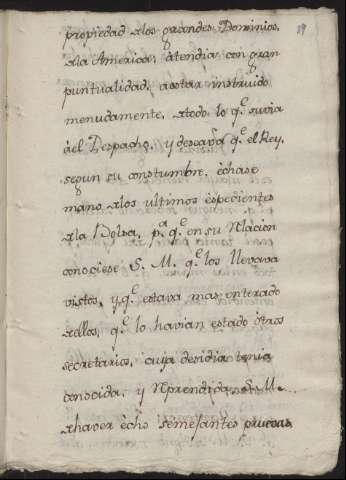 29
propiedad a los grandes Dominios,
a la America; atendia con gran
puntualidad, a estar instruido
menudamente, a todo lo q.e suvia
del Despacho, y deseava q.e el Rey,
segun su constumbre, èchase
mano a los ultimos espedientes
a la Bolsa, p.a q.e en su Relacion
conociese S. M. q.e los llevava
vistos, y q.e estava mas enterado
a ellos, q.e lo havian estado òtros
secretarios, cuya desidia tenia
conocida, y Reprendida S. M.
a haver ècho semejantes pruevas